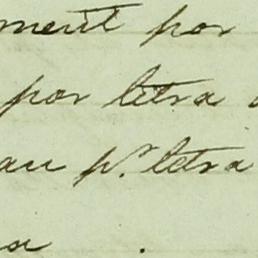 ment por
por letra
au pr. letra
a .